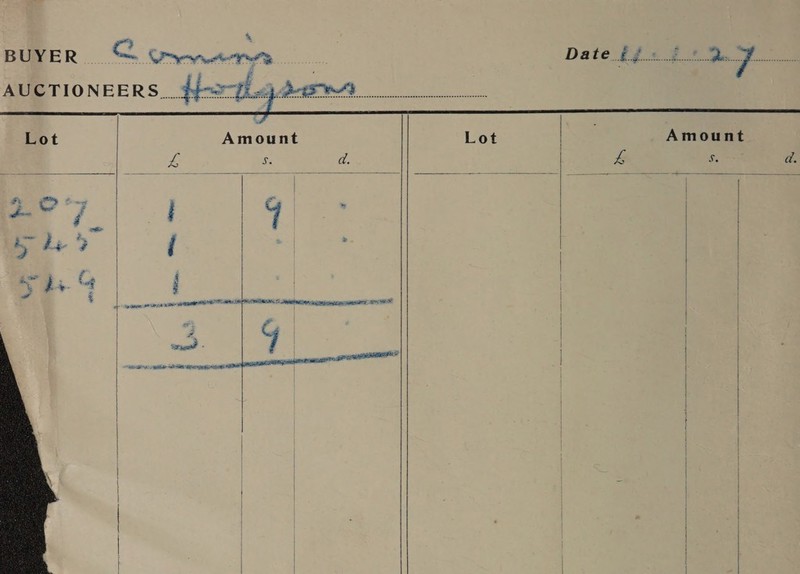 BUYER Comins Date 11.1.27
AUCTIONEERS Hodgsons
Lot Amount Lot Amount
£ s. d. £ s. d.
207 1 9 .
545 1 . .
549 1 . .
3 9 .